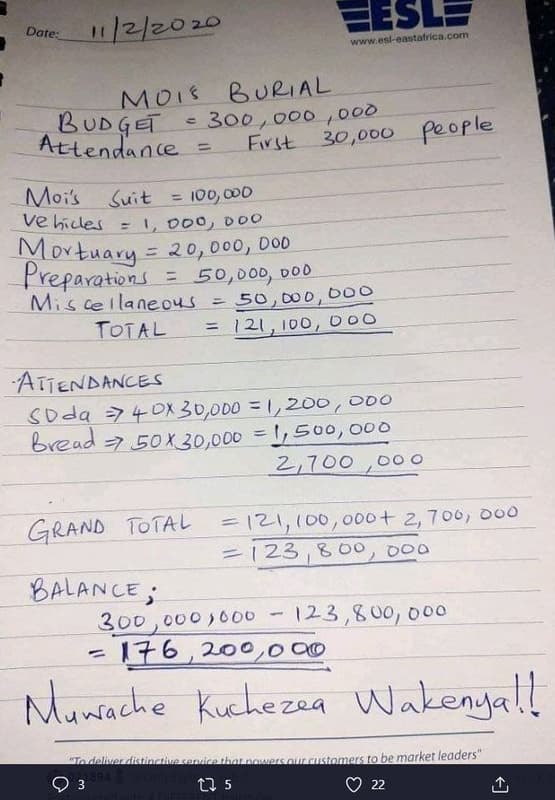 ESL
Date: 11/2/2020
www.esl-eastafrica.com
MOIS BURIAL
BUDGET = 300,000,000
Attendance = First 30,000 people
Moi's Suit = 100,000
Vehicles = 1,000,000
Mortuary = 20,000,000
Preparations = 50,000,000
Miscellaneous = 50,000,000
TOTAL = 121,100,000
ATTENDANCES
SODA ⇒ 40X30,000 = 1,200,000
Bread ⇒ 50X30,000 = 1,500,000
2,700,000
GRAND TOTAL = 121,100,000+ 2,700,000
= 123,800,000
BALANCE;
300,000,000 - 123,800,000
= 176,200,000
Muwache Kuchezea Wakenya!!
"To deliver distinctive service that powers our customers to be market leaders"
3 5 22